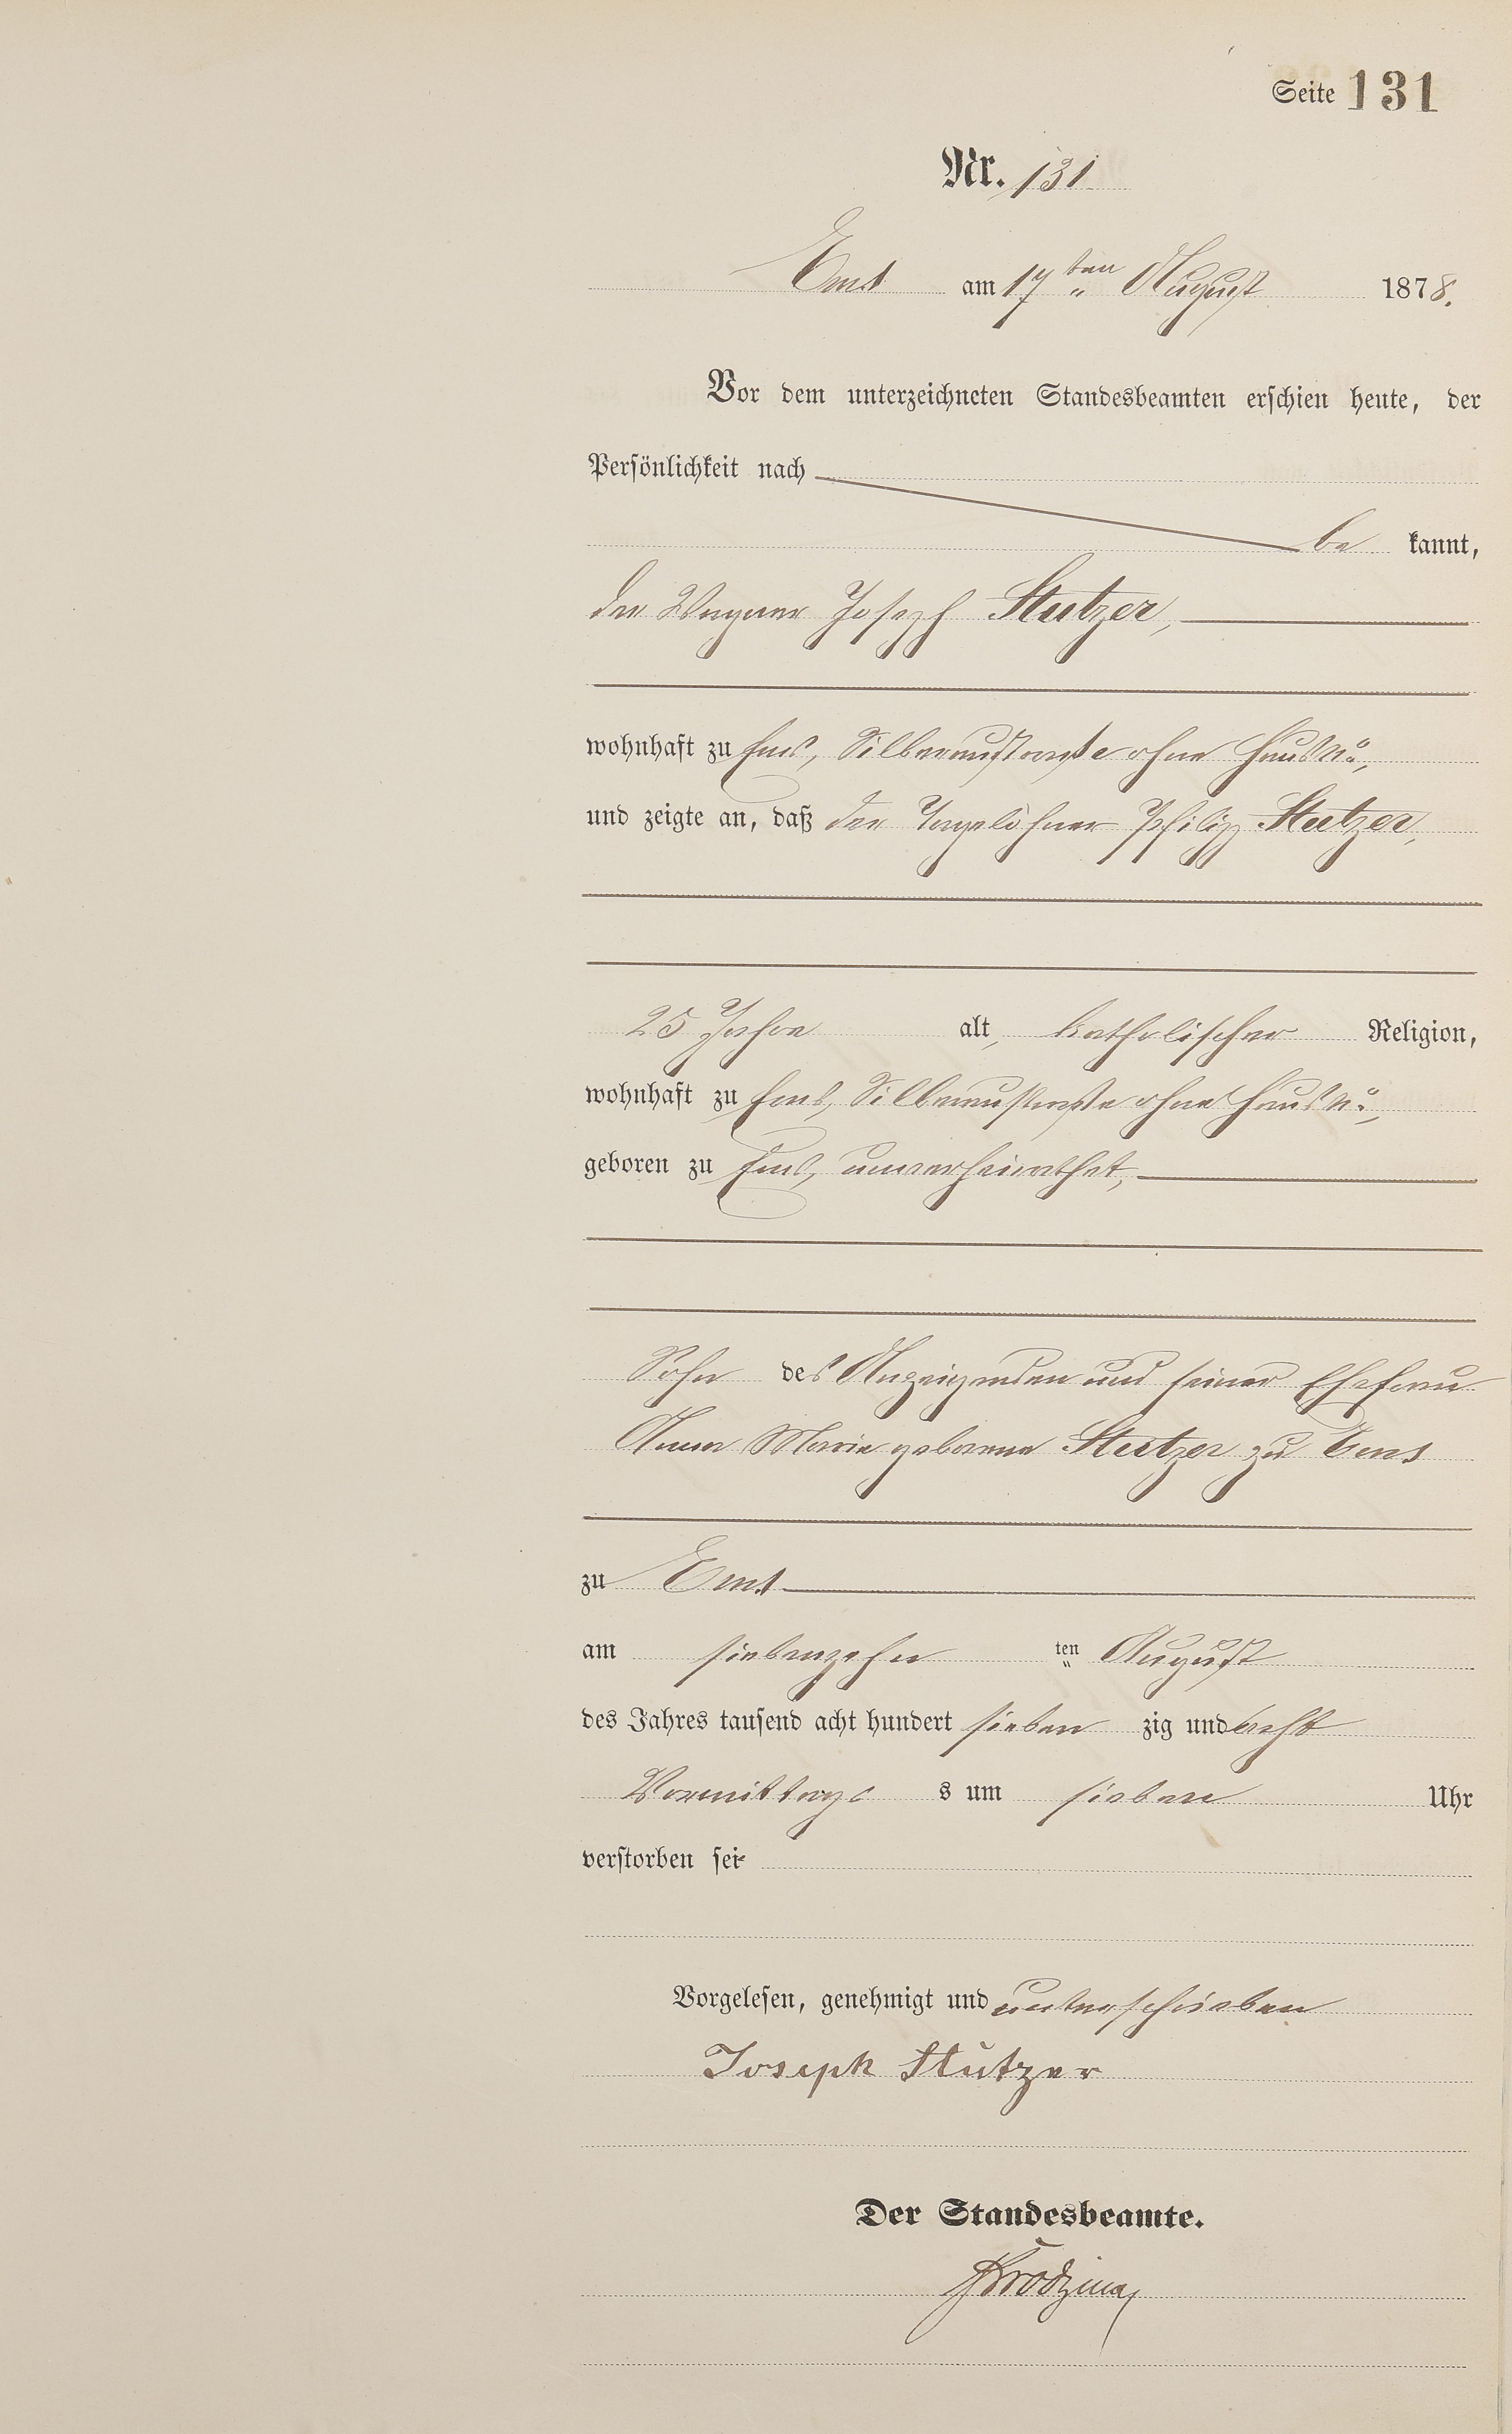 Seite 131
Nr. 131
Ems am 17ten August 1878.
Vor dem unterzeichneten Standesbeamten erschien heute, der
Persönlichkeit nach
be kannt,
der Wagner Joseph Stutzer,
wohnhaft zu Ems, Silberaustraße ohne Haus No,
und zeigte an, daß der Tagelöhner Philipp Stutzer,
25 Jahre alt, katholischer Religion,
wohnhaft zu Ems, Silberaustraße ohne Haus No,
geboren zu Ems, unverheirathet,
Sohn des Anzeigenden und seiner Ehefrau
Anna Marie geborene Stutzer zu Ems
zu Ems
am siebenzehn ten August
des Jahres tausend acht hundert sieben zig und acht
Vormittags s um sieben Uhr
verstorben sei
Vorgelesen, genehmigt und unterschrieben
Joseph Stutzer
Der Standesbeamte.